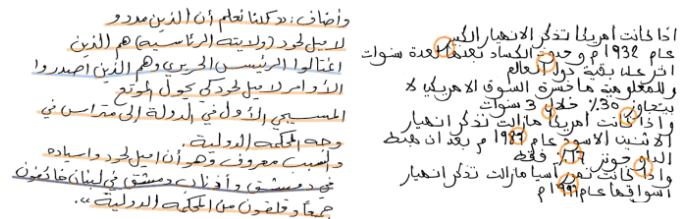 اذا كانت أمريكا تذكر الانهيار الكبير
عام 1932 م وحدوث الكساد بعدها لعدة سنوات
اثر على بقية دول العالم
وللمعلومية ما خسرة السوق الامريكي لا
يتجاوز 30% خلال 3 سنوات
واذا كانت أمريكا مازالت تذكر انهيار
الاثنين الاسود عام 1987 م بعد ان هبط
الداو جونز 22% فقط
واذا كانت نمور آسيا مازالت تذكر انهيار
اسواقها عام 1997 م
وأضاف: «وكلنا نعلم أن الذين مددو
لاميل لحود (ولايته الرئاسية) هم الذين
اغتالوا الرئيس الحريري وهم الذين اصدروا
الأوامر لاميل لحود كي يحول الموقع
المسيحي الأول في الدولة إلى متراس في
وجه المحكمة الدولية.
والسبب معروف وهو أن اميل لحود واسياده
في دمشق وأذناب دمشق في لبنان خائفون
جميعا وقلقون من المحكمة الدولية».